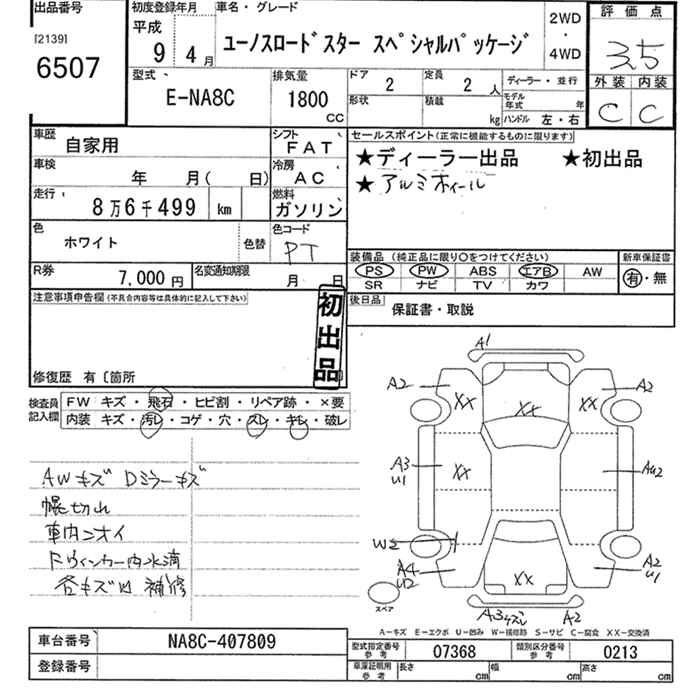 出品番号
[2139]
6507
初度登録年月
平成
9年 4月
車名・グレード
ユーノスロードスター スペシャルパッケージ
2WD
・
4WD
評価点
3.5
外装 内装
C C
型式
E-NA8C
排気量
1800
CC
ドア
2
定員
2人
形状
積載
kg
ディーラー・並行
モデル年式 年
ハンドル 左・右
車歴
自家用
シフト
FAT
車検
年 月( 日)
冷房
AC
走行
8万6千499 km
燃料
ガソリン
色
ホワイト
色替
色コード
PT
R券
7,000円
名変通知期限
月 日
セールスポイント(正常に機能するものに限ります)
★ディーラー出品 ★初出品
★アルミホイール
装備品(純正品に限り〇をつけてください)
PS PW ABS エアB AW
SR ナビ TV カワ
新車保証書
有・無
後日品
保証書・取説
注意事項申告欄(不具合内容等は具体的に記入して下さい)
初出品
修復歴 有〔箇所
検査員
記入欄
FW キズ・飛石・ヒビ割・リペア跡・×要
内装 キズ・汚レ・コゲ・穴・スレ・キレ・破レ
AWキズ Dミラーキズ
幌切れ
車内ニオイ
Fウィンカー内水滴
各キズ凹 補修
A1
A2 XX XX XX A2
A3
U1
XX
AU2
W2
A4
U2
XX
A2
U1
スペア
A3 ｹｽﾞﾚ A2
A−キズ E−エクボ U−凹み W−補修跡 S−サビ C−腐食 XX−交換済
車台番号
NA8C-407809
登録番号
型式指定番号
参考
07368
類別区分番号
参考
0213
車庫証明用
参考
長さ cm 幅 cm 高さ cm